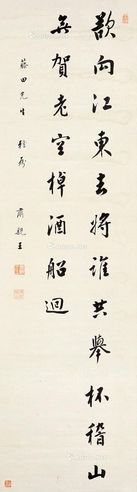 欲向江東去將誰共舉杯稽山
無賀老空棹酒船迴
藤田先生 雅屬
肅親王